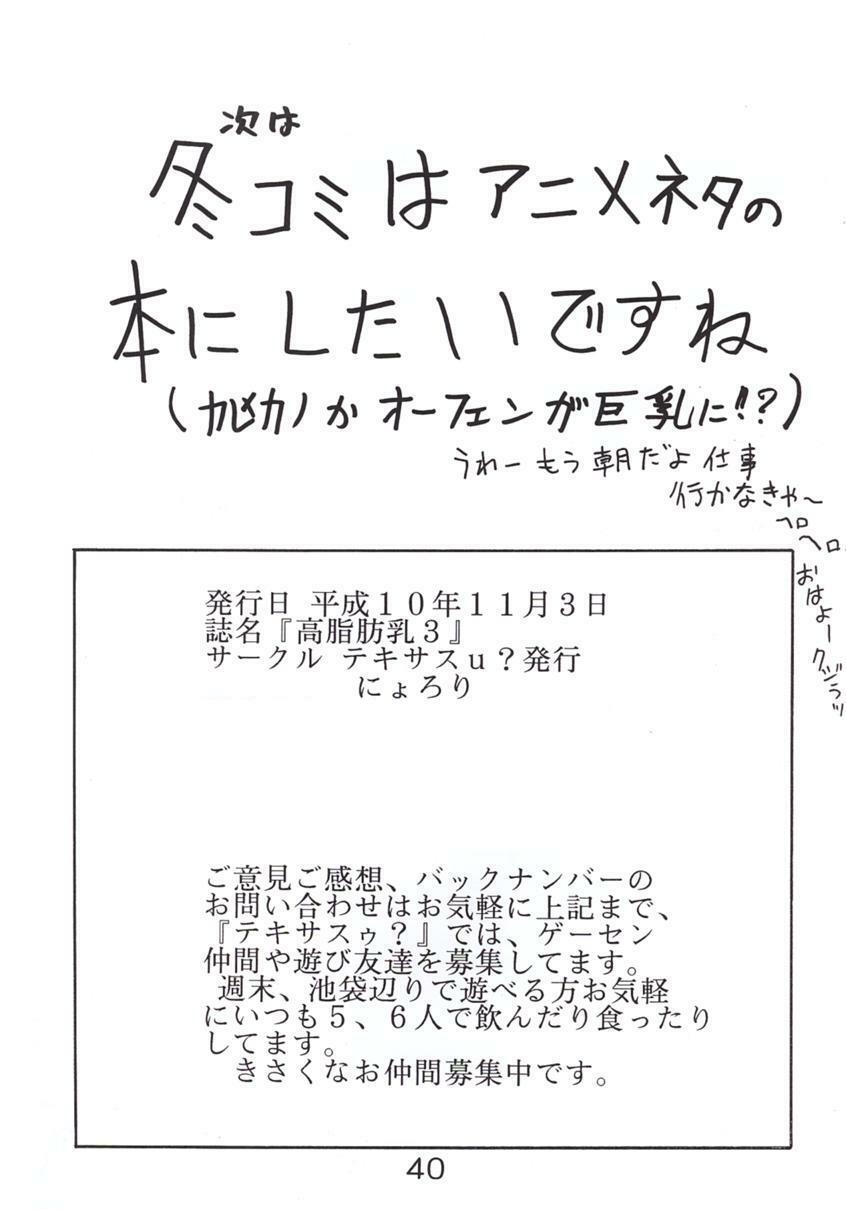 次は
冬コミはアニメネタの
本にしたいですね
か オーフェンが巨乳に!!?)
うれー もう朝だよ 仕事
行かなきゃ～
ヘロ
ヘロ
おはよー
発行日 平成10年11月3日
誌名『高脂肪乳3』
サークル テキサスu?発行
にょろり
ご意見ご感想、バックナンバーの
お問い合わせはお気軽に上記まで、
『テキサスゥ?』では、ゲーセン
仲間や遊び友達を募集してます。
週末、池袋辺りで遊べる方お気軽
にいつも5、6人で飲んだり食ったり
してます。
きさくなお仲間募集中です。
40